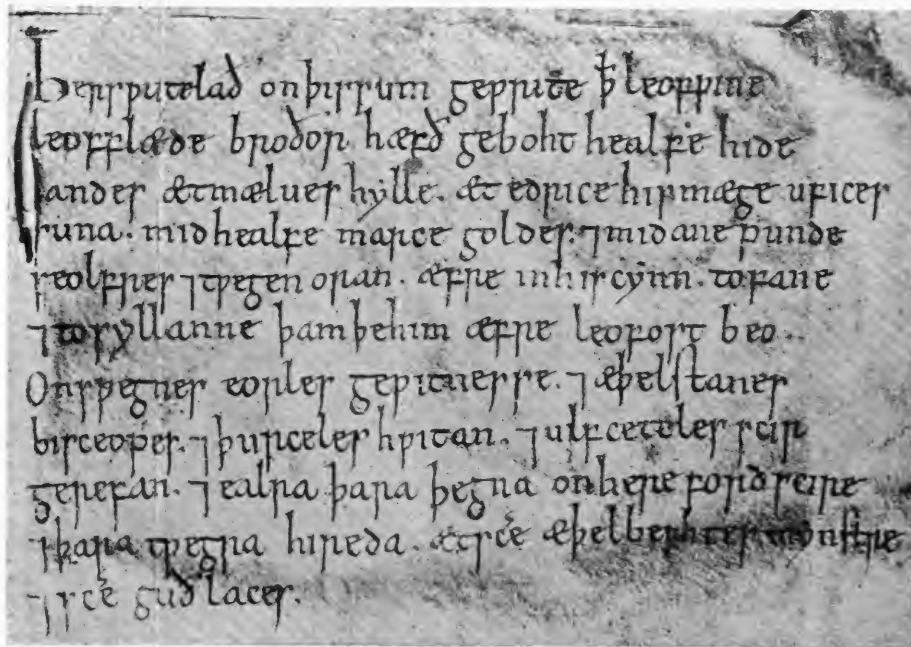 Her sƿutelað on þissum geƿrite ꝥ leofƿine
leofflæde broðor hæfð geboht healfe hide
landes æt mælues hylle. æt edrice his mæge ufices
suna. mid healfe marce goldes. ⁊ mid ane punde
seolfres ⁊ tƿegen oran. æfre in his cynn. to fane
⁊ to syllanne þam þe him æfre leofost beo.
On sƿegnes eorles geƿitnesse. ⁊ æþelstanes
bisceopes. ⁊ þurceles hƿitan. ⁊ ulfceteles scir
gerefan. ⁊ ealra þara þegna on hereford scire
⁊ þara tƿegra hireda. æt sc̄e æþelberhtes mynstre
⁊ sc̄e guðlaces.